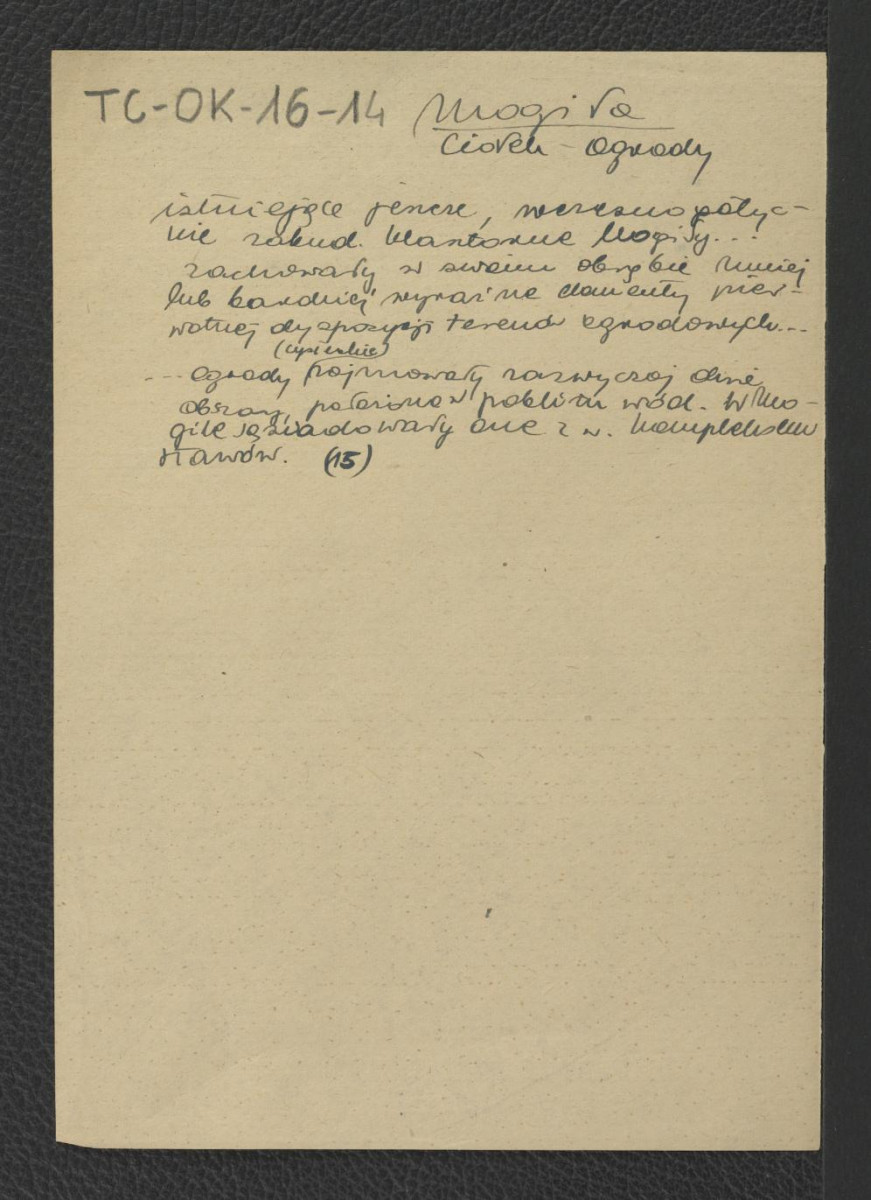 TC-OK-16-14 Mogiła
Ciołek - Ogrody
istniejące jeszcze, wczesnogotyc-
kie zabud. klasztorne Mogiły...
zachowały w swoim obrębie mniej
lub bardziej wyraźne elementy pier-
wotnej dyspozycji terenów ogrodowych...
(cysterskie)
... ogrody zajmowały zazwyczaj duże
obszary, położone w pobliżu wód. W Mo-
gile sąsiadowały one z w. kompleksem
stawów. (15)